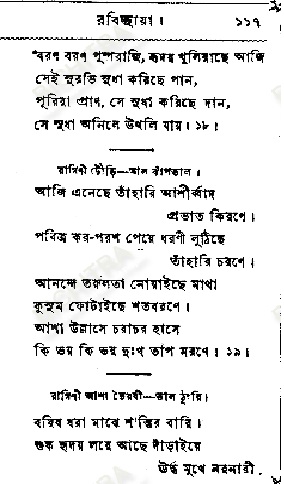 রবিচ্ছায়া। ১১৭
বরণ বরণ পুষ্পরাজি, হৃদয় খুলিয়াছে আজি
সেই সুরভি সুধা করিছে পান,
পূরিয়া প্রাণ, সে সুধা করিছে দান,
সে সুধা অনিলে উথলি যায়। ১৮।
রাগিণী টৌড়ি—তাল ঝাঁপতাল।
আজি এনেছে তাঁহারি আশীর্ব্বাদ
প্রভাত কিরণে।
পবিত্র কর-পরশ পেয়ে ধরণী লুঠিছে
তাঁহারি চরণে।
আনন্দে তরুলতা নোয়াইছে মাথা
কুসুম ফোটাইছে শতবরণে।
আশা উল্লাসে চরাচর হাসে
কি ভয় কি ভয় দুঃখ তাপ মরণে। ১৯।
রাগিণী আশা ভৈরবী—তাল ঠুংরি।
বরিষ ধরা মাঝে শান্তির বারি।
শুষ্ক হৃদয় লয়ে আছে দাঁড়াইয়ে
ঊর্দ্ধ মুখে নরনারী.